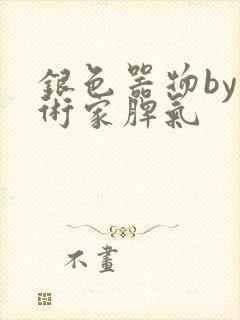 銀色器物by
術家脾氣
不畫